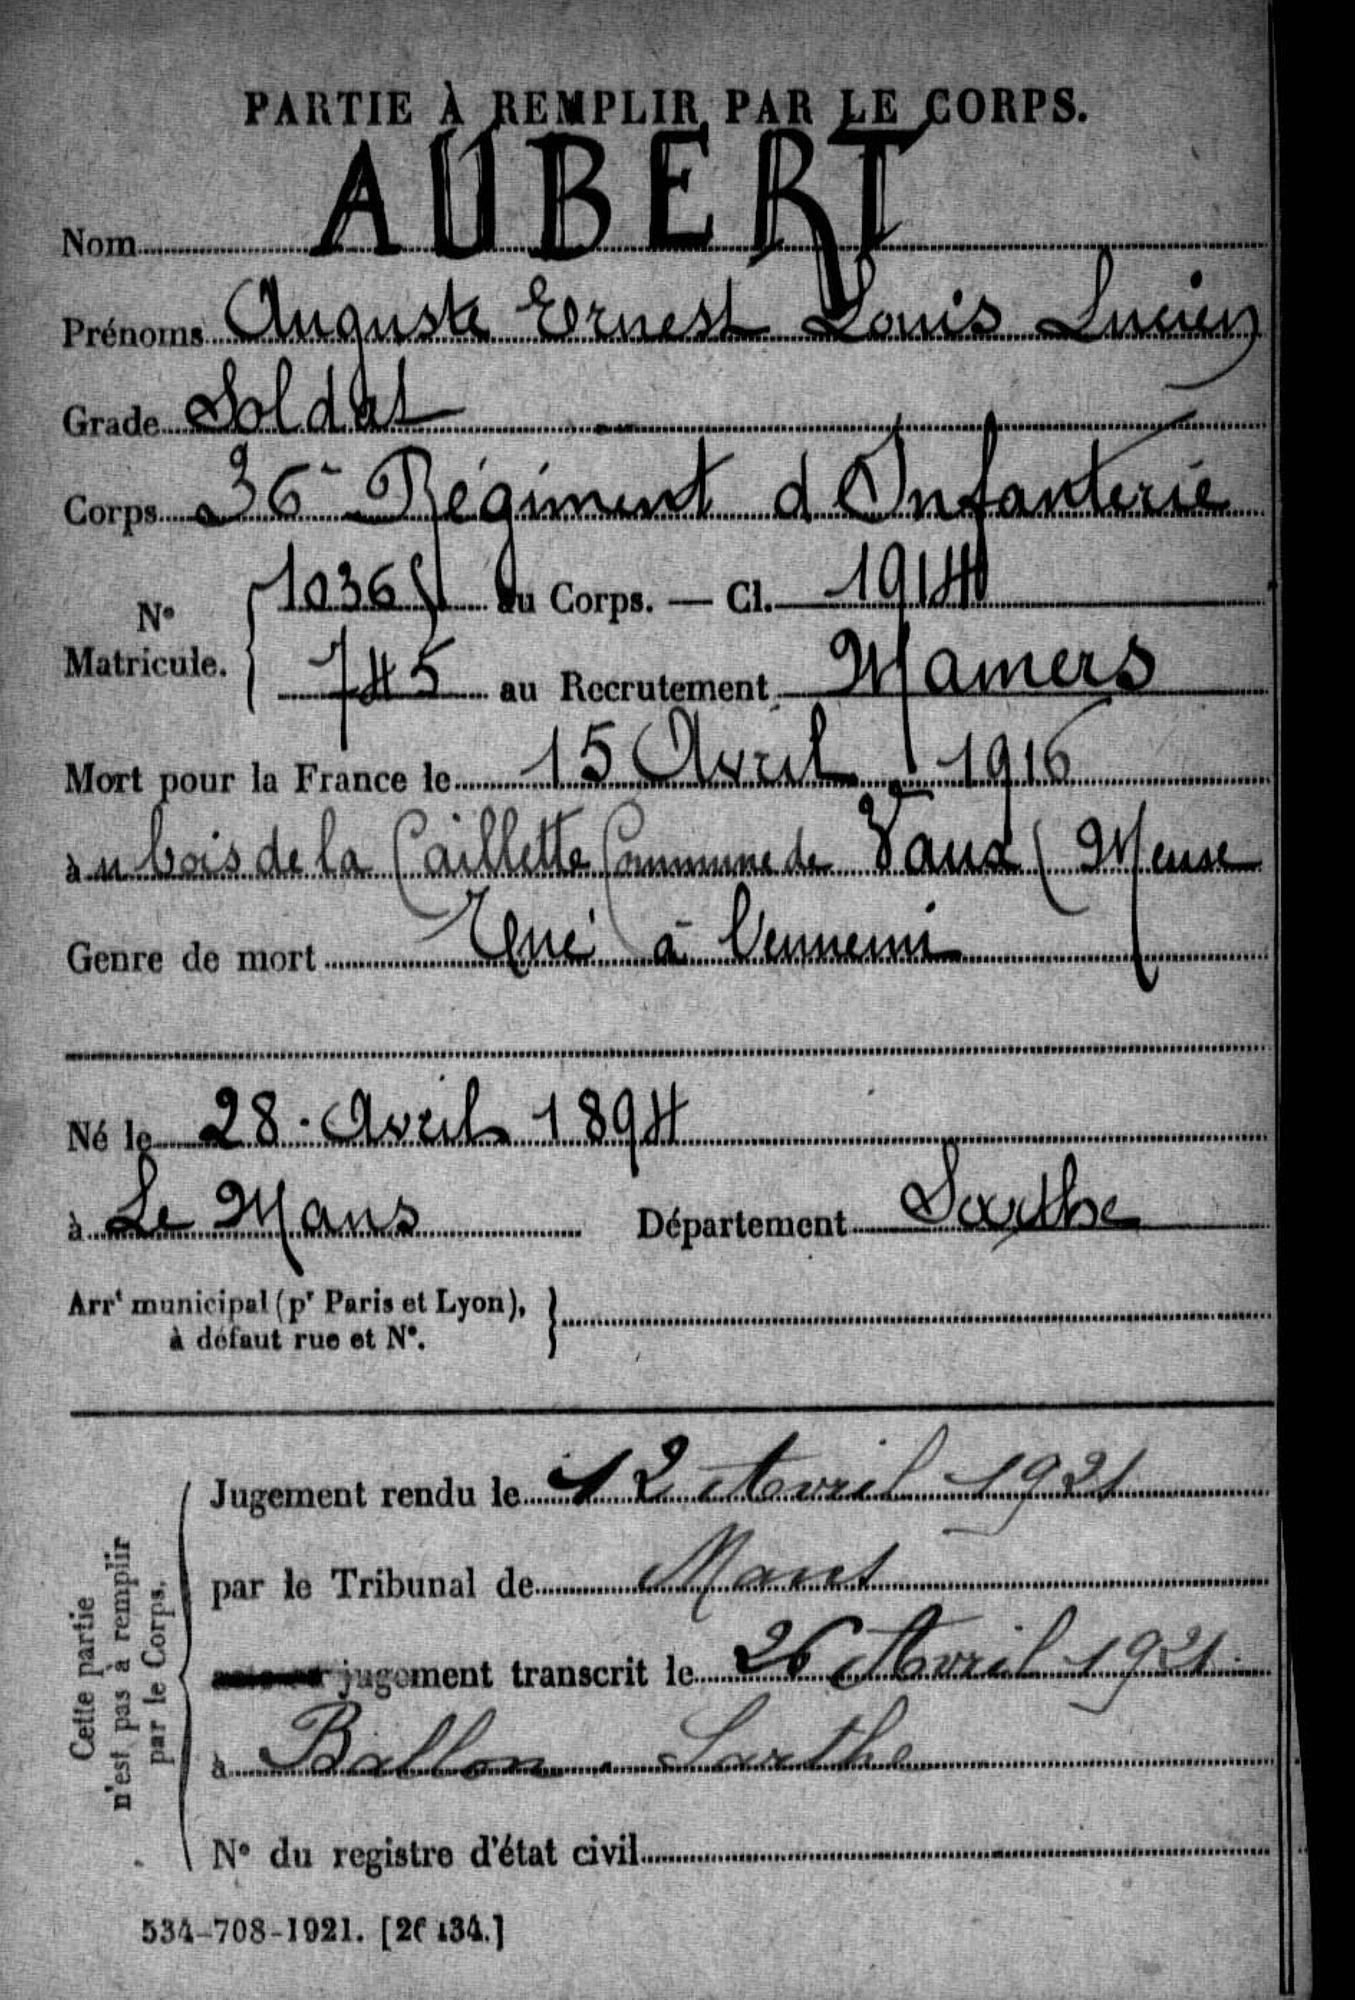 PARTIE À REMPLIR PAR LE CORPS.
Nom AUBERT
Prénoms Auguste Ernest Louis Lucien
Grade Soldat
Corps 36e Régiment d Infanterie
N° Matricule. { 1036 au Corps. — Cl. 1914
745 au Recrutement Mamers
Mort pour la France le 15 Avril 1916
au bois de la Caillette Commune de Vaux (Meuse
Genre de mort Tué à l'ennemi
Né le 28 Avril 1894
à Le Mans Département Sarthe
Arrt municipal (pr Paris et Lyon), }
à défaut rue et N°.
Cette partie
n'est pas à remplir
par le Corps.
Jugement rendu le 12 Avril 1921
par le Tribunal de Mans
jugement transcrit le 26 Avril 1921.
à Ballon. Sarthe
N° du registre d'état civil
534-708-1921. [26434.]